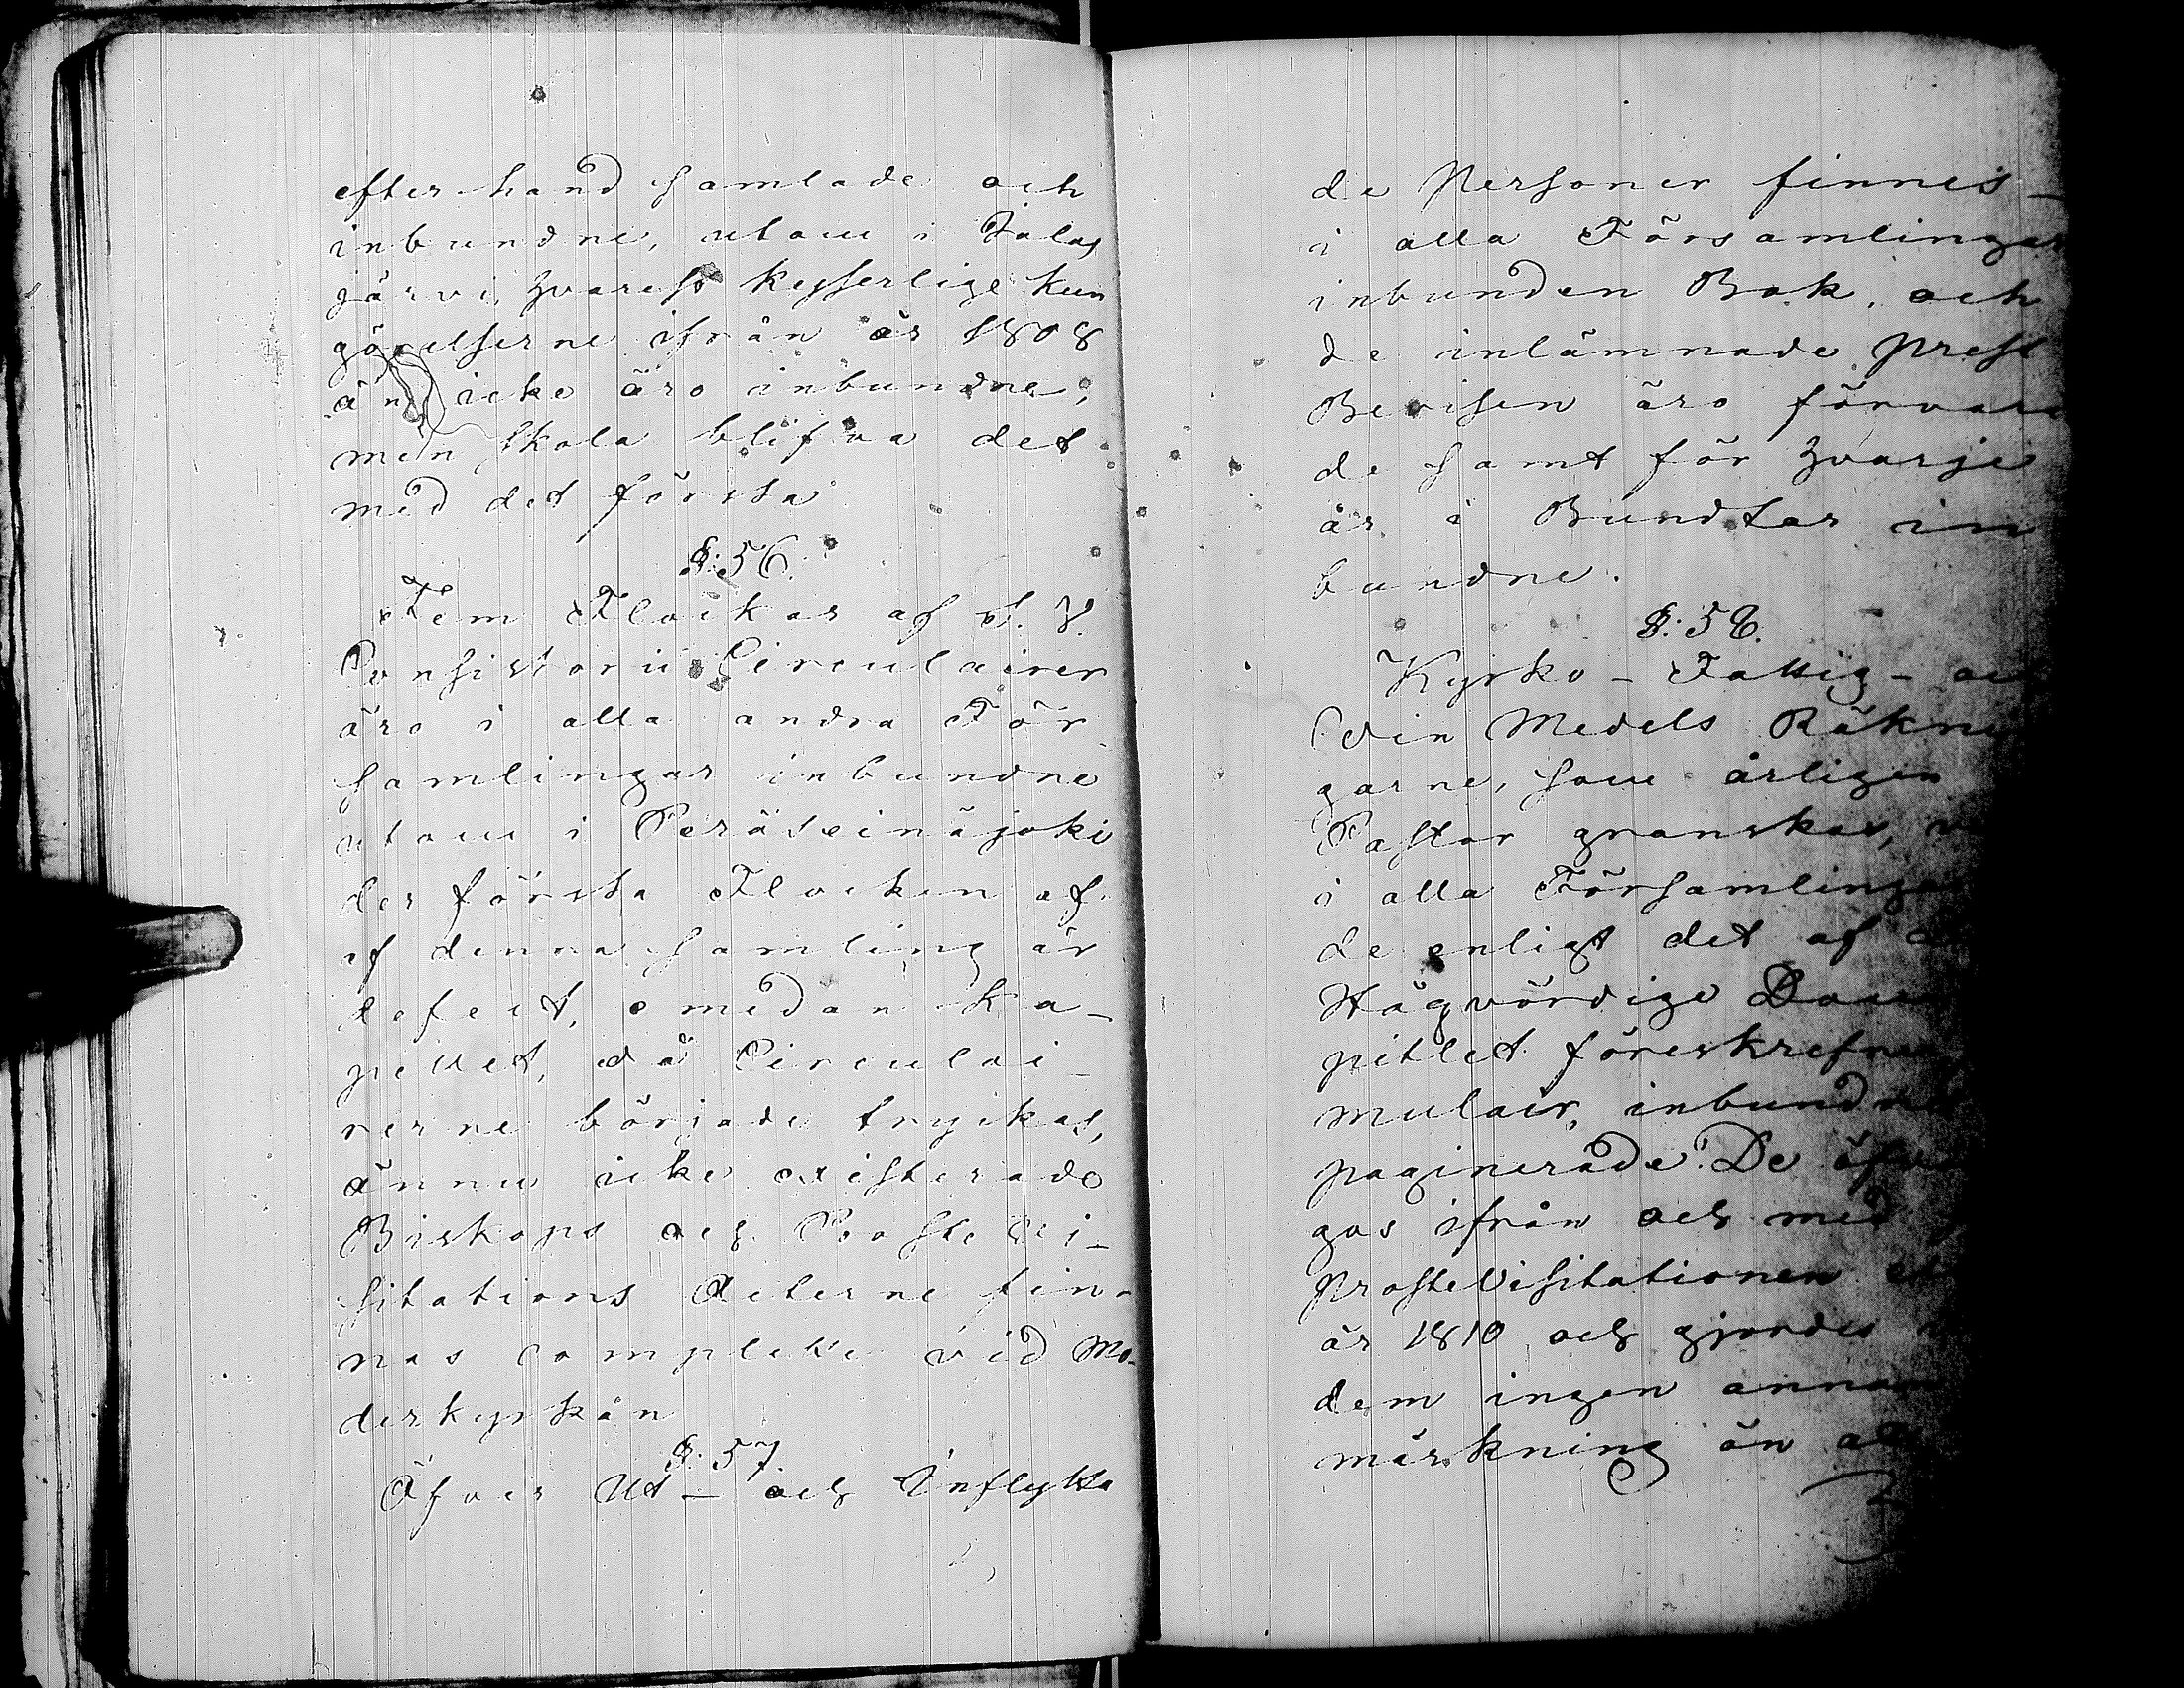 efter hand samlade och
inbundne, utom i Jalas
järvi, hvarest Keyserlige Kun
görelserne ifrån år 1808
än icke äro inbundne,
men skola blifva det
med det första
§: 56.
Fem Flockar af S. V.
Consistorii Circulairer
äro i alla andra För
samlingar inbundne
utom i Peräseinäjoki
der första Flocken af
af denna samling är
defect, emedan Ka-
pellet, då Circulai-
rerne började tryckas,
ännu icke existerade
Biskops och Proste Vi-
sitations Acterne fin-
nas complette vid Mo-
derkyrkan
§: 57
Öfver Ut- och Inflytta
de Personer finnes
i alla Församlingar
inbunden Bok, och
de inlämnade Prest
Bevisen äro förvara
de samt för hvarje
år i Bundtar in
bundne.
§: 58.
Kyrko- Fattig-
Vin Medels Räkne
garne, som årligen
Pastor granskas,
i alla Församlingar
de enligt det af
Högvördige Dom
pitlet föreskrefne
mulair, inbundne
paginerade. De
gas ifrån och med
Proste Visitationen
år 1810 och gjordes
dem ingen annan
märkning än